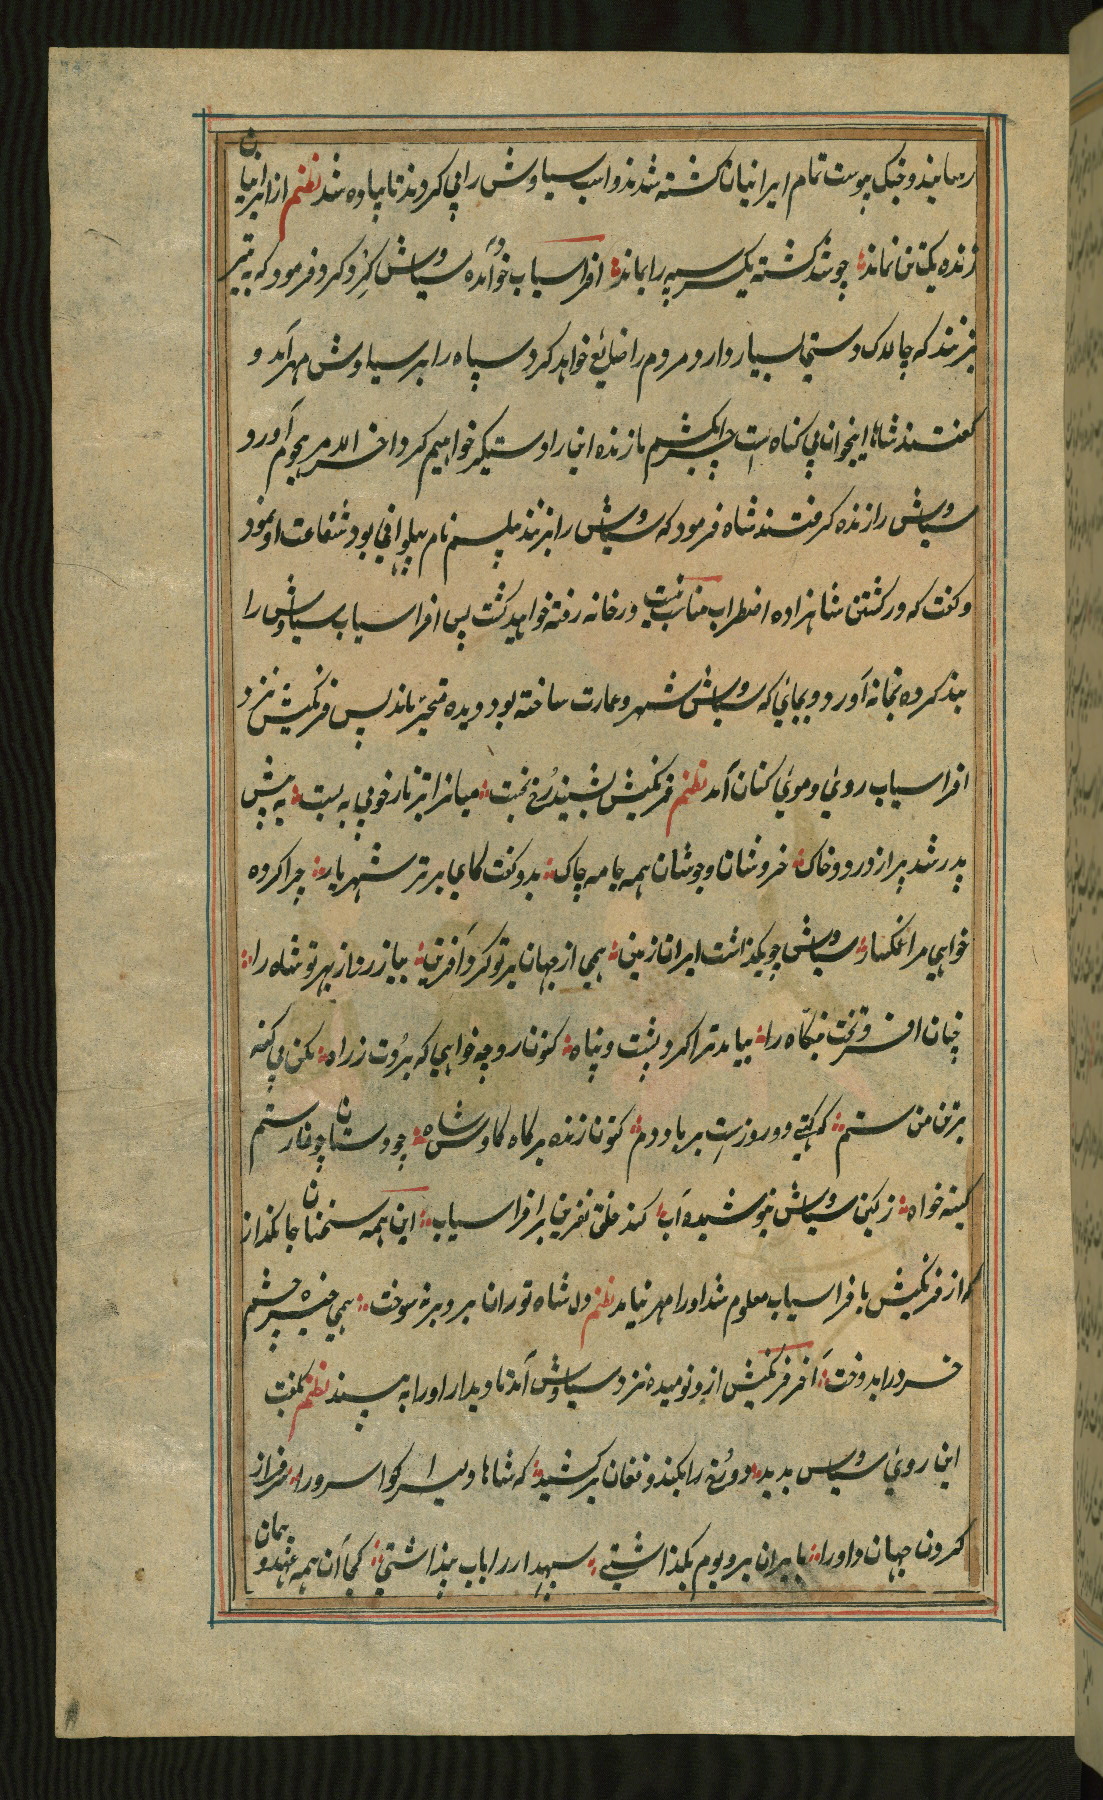 رسانید و جنک پیوست تمام ایرانیان کشته شدند و اسب سیاوش را پی کردند تا پیاده شد نظم از ایرانیان
زنده یکتن نماند چو شد کشته یکسر سپه را بماند افراسیاب خود آمده سیاوش کرد کرد و فرمود که به تیر
بزنند که چالاک دستیها بسیار دارد و مردم را ضایع خواهد کرد سپاه را بر سیاوش مهر آمد و
کفتند شاها اینجوان بی کناه است چرا بکشیم ما زنده این را دستکیر خواهیم کرد اخر الامر هجوم آورد
سیاوش را زنده کرفتند شاه فرمود که سیاوش را بزنند پیلسم نام پهلوانی بود شفاعت او نمود
و کفت که در کشتن شاهزاده اضطراب مناسب نیست در خانه رفته خواهید کشت پس افراسیاب سیاوش را
بند کرده بخانه آورد و بجای که سیاوش شهر و عمارت ساخته بود دیده متحیر ماند پس فرنکیش نزد
افراسیاب روی و موی کنان آمد نظم فرنکیش بشنید رخ بخست میانرا بزنار خونی به بست به پیش
پدر شد پر از درد و خاک خروشان و جوشان همه جامه چاک بدو کفت کای نابرتر شهریار چرا کرده
خواهی مرا خاکسار سیاوش چو بکذاشت ایران زمین همی از جهان بر تو کرد آفرین بیازرد از بهر تو شاه را
چنان افسر و تخت بنکاه را بیامد ترا کرد پشت و پناه کنون زو چه خواهی که بردت ز راه مکن بی کنه
بر تن من ستم که کیتی دو روزست بر باد و دم کنون زنده بر کاه کاوس شاه چو دستان چو رستم
کینه خواه ز کین سیاوش بنوشیده آب کند خلق نفرین بر افراسیاب این همه سخنان جانکداز
که از فرنکیش با فراسیاب معلوم شد او را مهر نیامد نظم دل شاه توران برو بر نسوخت همی خیره چشم
خرد را بدوخت آخر فرنکیش ازو نومیده نزد سیاوش آمد تا دیدار او را به بیند نظم بکفت
این روی سیاوس بدید دو رخ را بکند و فغان برکشید که شاها دلیرا کوا سرورا سرفراز
کردن جهان داورا بایران بر و بوم بکذاشتی سپهدار را باب پنداشتی کجا آن همه عهد و پیمان